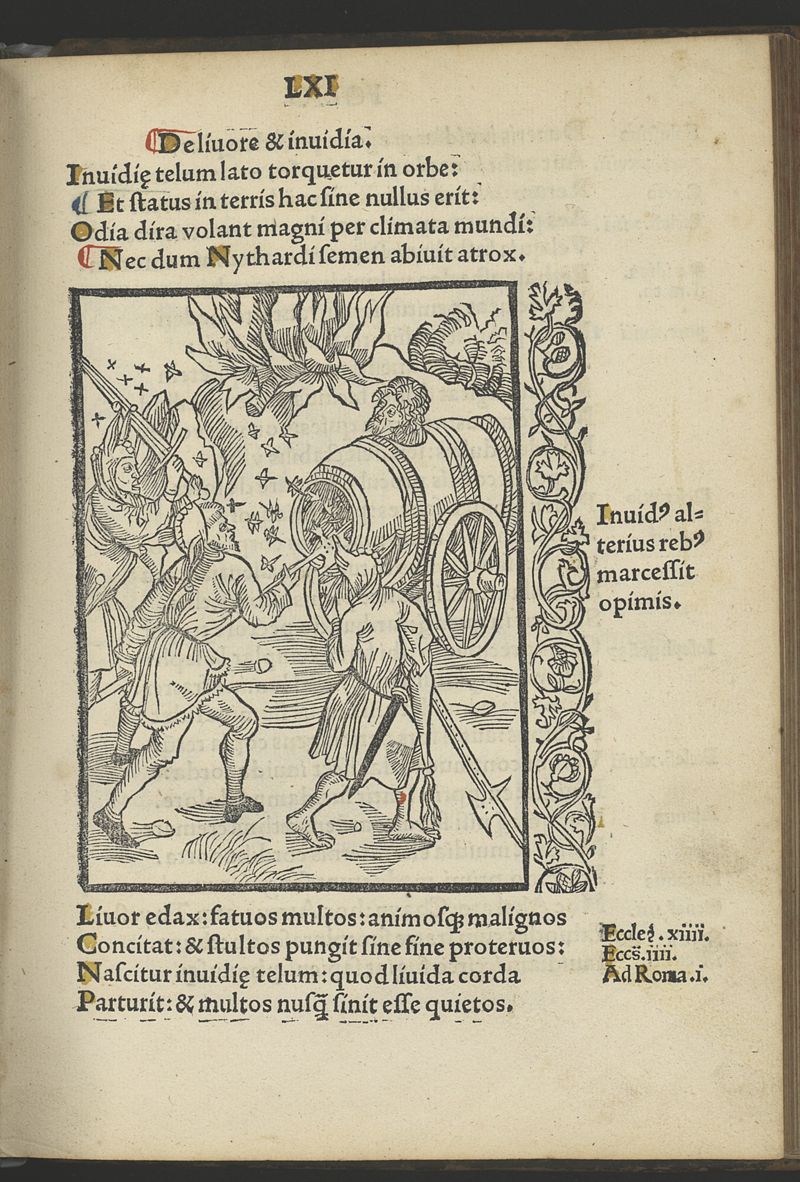 LXI
De liuore & inuidia.
Inuidię telum lato torquetur in orbe:
Et ſtatus in terris hac ſine nullus erit:
Odia dira volant magni per climata mundi:
Nec dum Nythardi ſemen abiuit atrox.
Inuidꝰ al⸗
terius rebꝰ
marceſſit
opimis.
Liuor edax: fatuos multos: animoſqꝫ malignos
Concitat: & ſtultos pungit ſine fine proteruos:
Naſcitur inuidię telum: quod liuida corda
Parturit: & multos nuſq̃ ſinit eſſe quietos.
Eccleꝫ. xiiii.
Eccs̃. iiii.
Ad Roma. i.